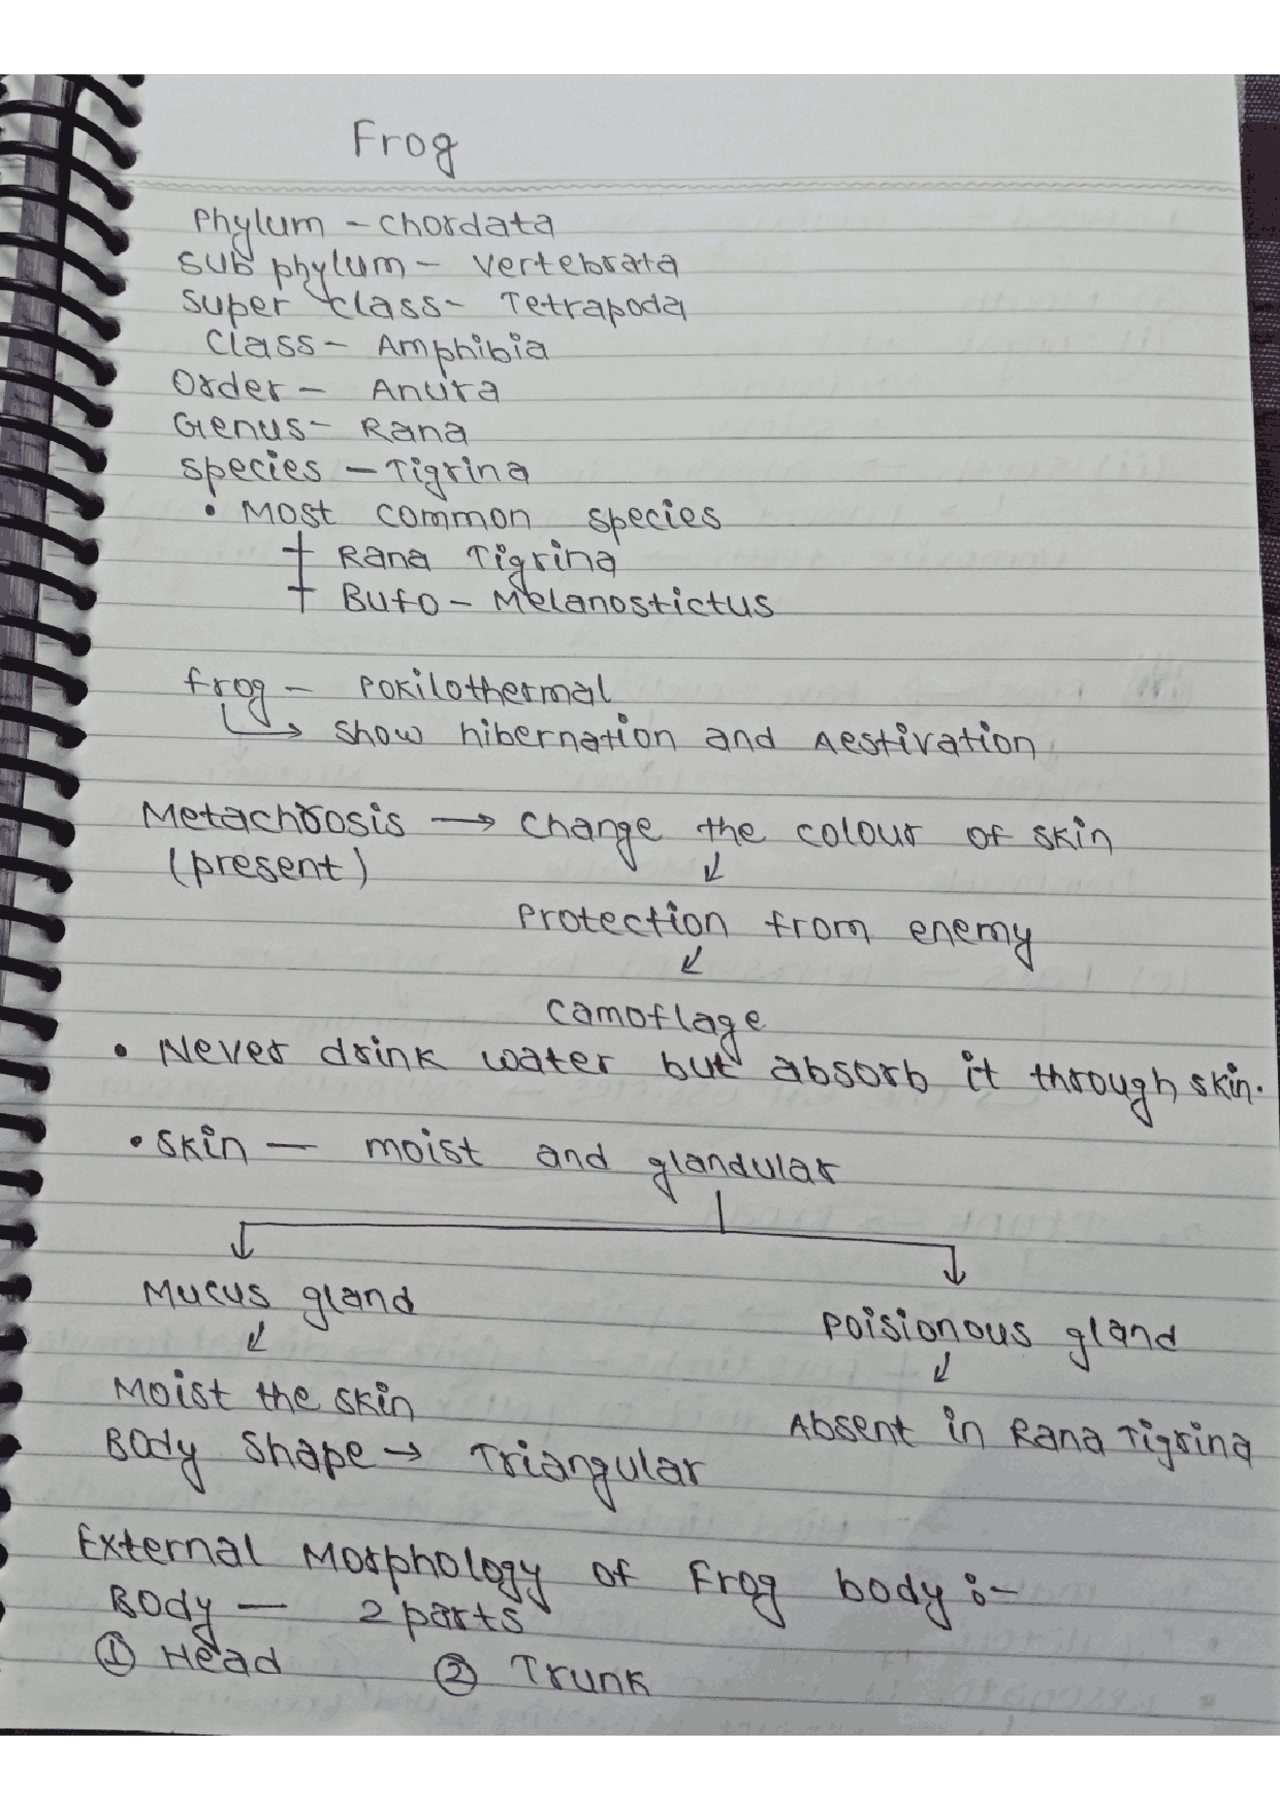 Frog
Phylum - Chordata
Sub phylum - Vertebrata
Super class - Tetrapoda
Class - Amphibia
Order - Anura
Genus - Rana
Species - Tigrina
• Most common species
+ Rana Tigrina
+ Bufo - Melanostictus
frog - Pokilothermal
↳ show hibernation and Aestivation
Metachrosis → Change the colour of skin
(present) ↓
Protection from enemy
↓
Camoflage
• Never drink water but absorb it through skin.
• Skin — moist and glandular
Mucus gland Poisionous gland
↓ ↓
Moist the skin Absent in Rana Tigrina
Body Shape → Triangular
External Morphology of Frog body :-
Body — 2 parts
① Head ② Trunk